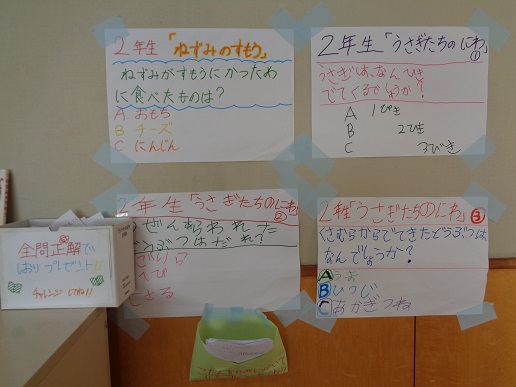 2年生「ねずみのすもう」
ねずみがすもうにかったわ
に食べたものは?
A おもち
B チーズ
C にんじん
2年生「うさぎたちのにわ」①
うさぎは、なんひき
でてくるでしょうか?
A 1ぴき
B 2ひき
C 3びき
2年生「うさぎたちのにわ」②
ぜんあらわれた
どうぶつはだれ?
へび
Cさる
2年生「うさぎたちのにわ」③
くさむらからでてきたどうぶつは、
なんでしょうか?
A うま
B ひつじ
C あかぎつね
全問正解で
しおりプレゼント!!
チャレンジしてね!!